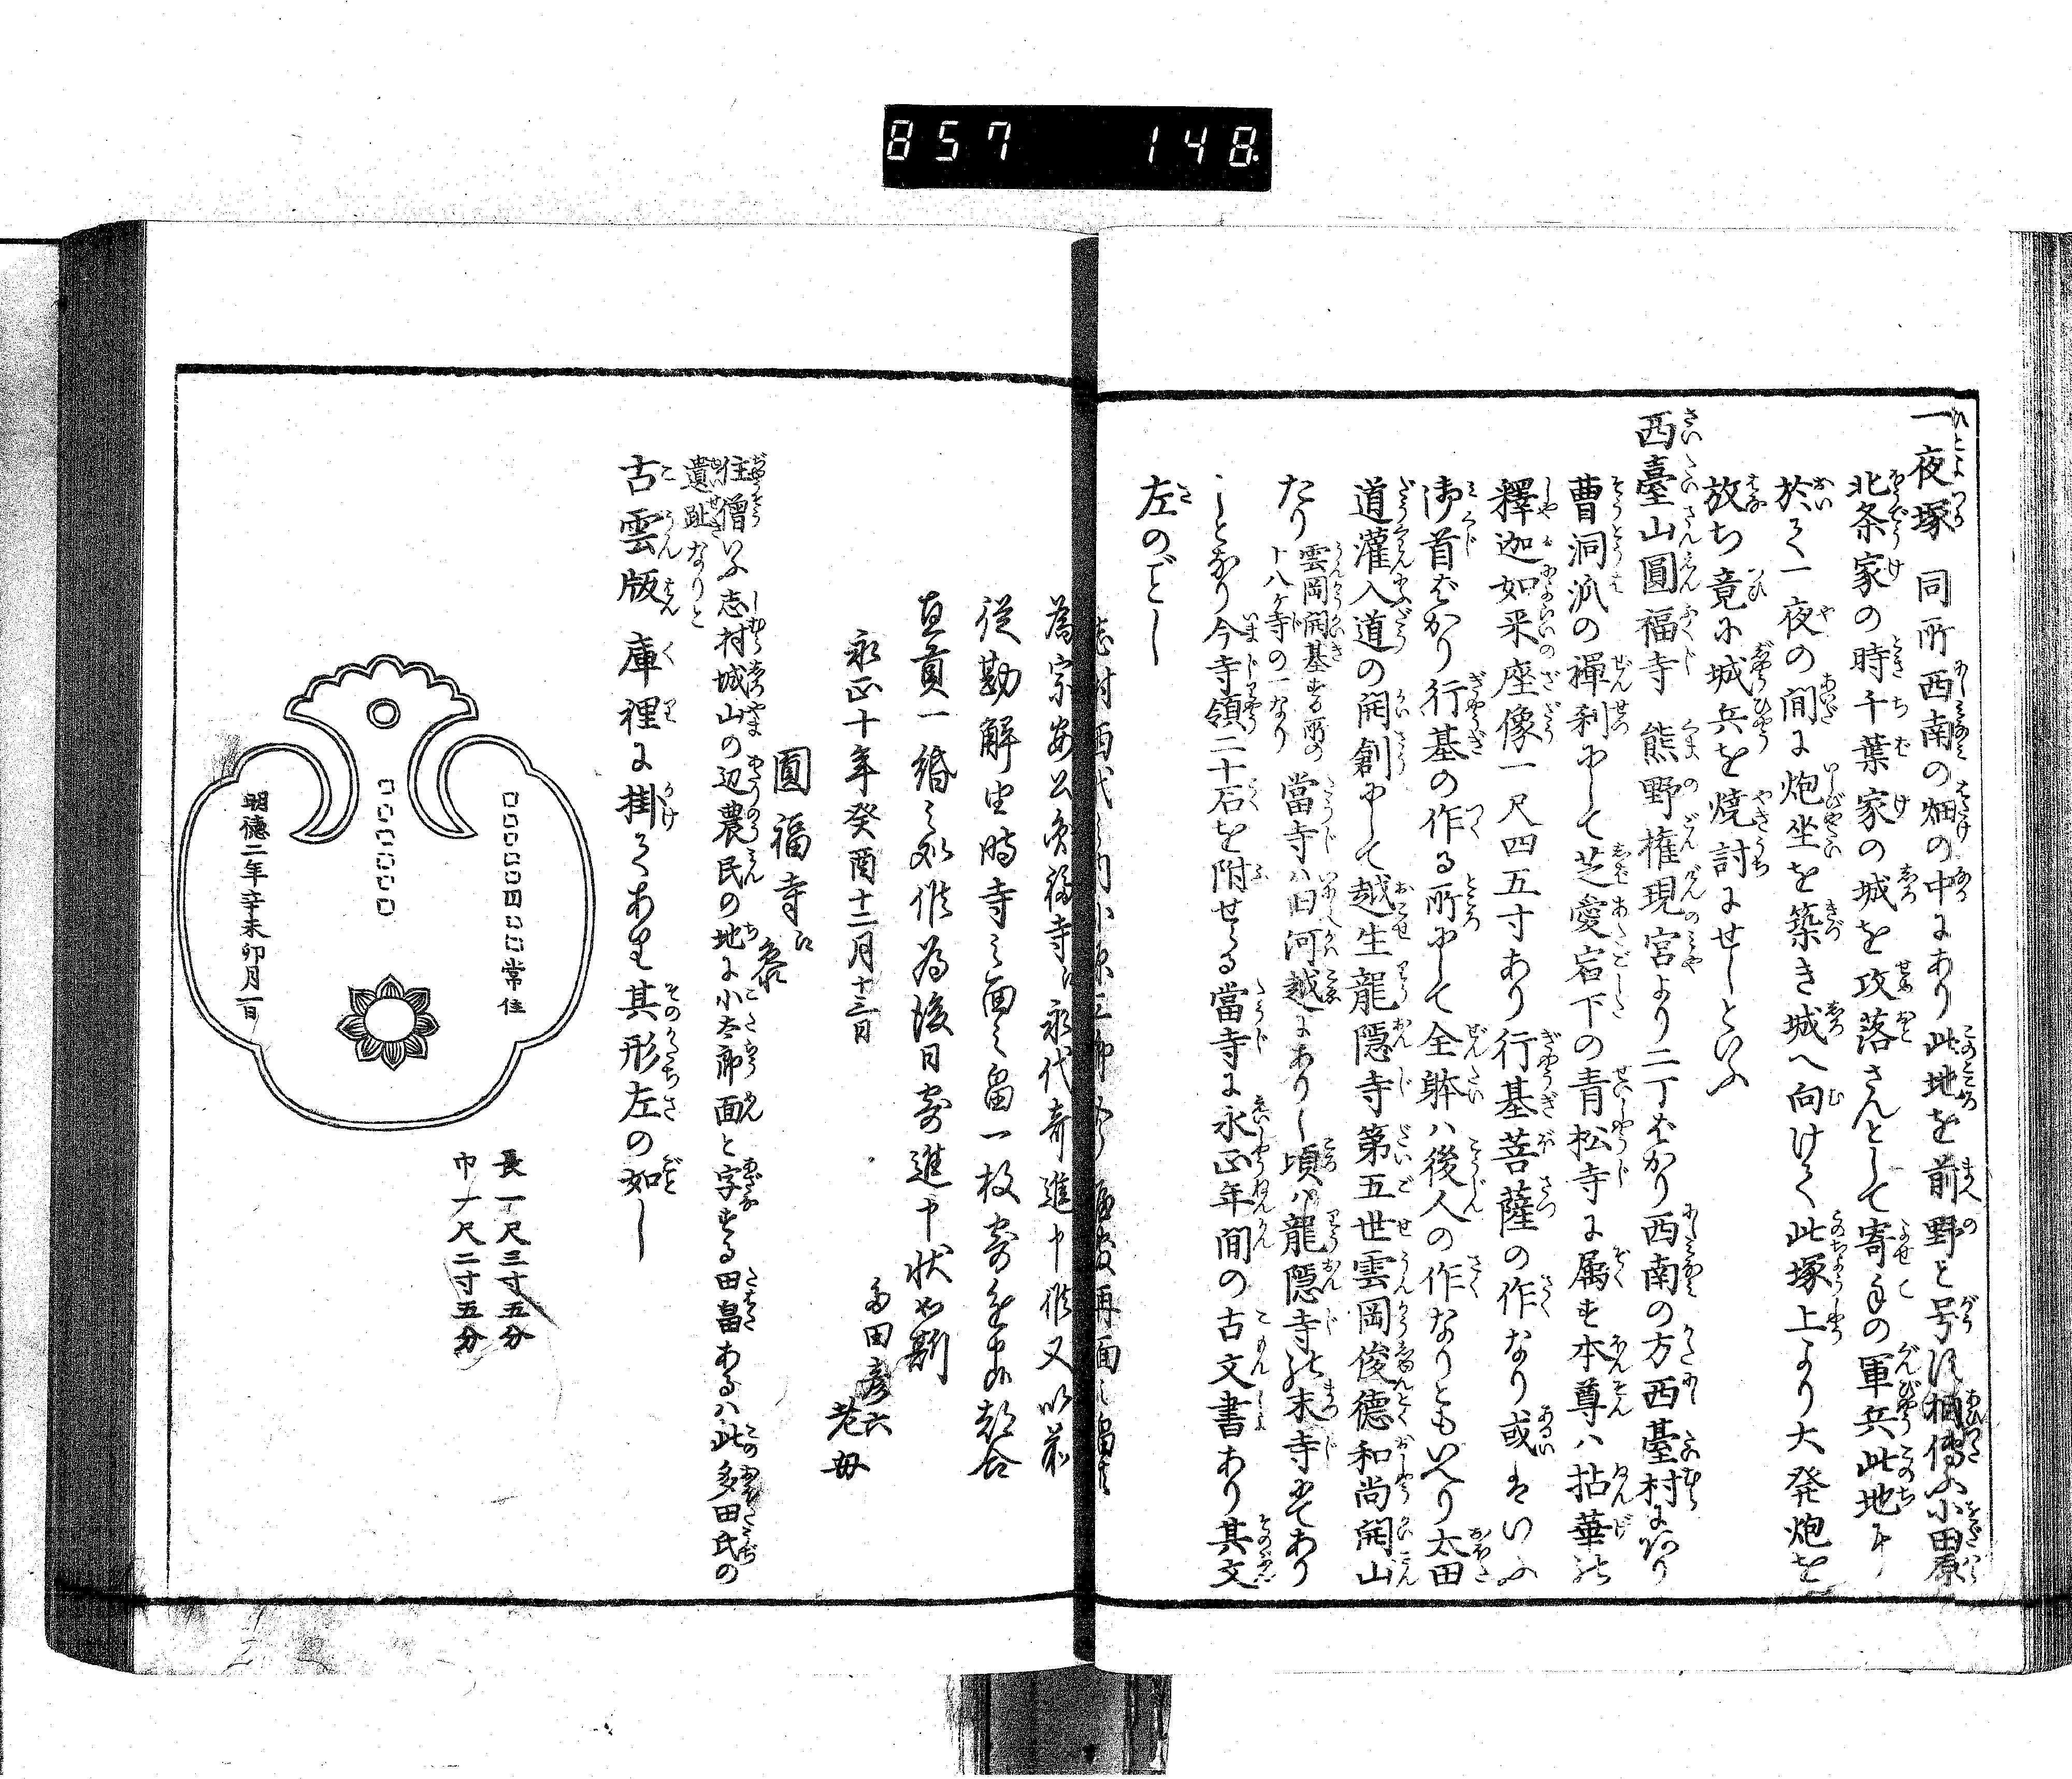 857 148
一夜塚 同所西南の畑の中にあり此地を前野と号す相傳ふ小田原
北条家の時千葉家の城を攻落さんとして寄手の軍兵此地に
於て一夜の間に炮坐を築き城へ向けて此塚上より大発炮を
放ち竟に城兵を焼討にせしといふ
西臺山圓福寺 熊野権現宮より二丁ばかり西南の方西臺村にあり
曹洞派の禪刹にして芝愛宕下の青松寺に属す本尊ハ拈華の
釋迦如来座像一尺四五寸あり行基菩薩の作なり或はいふ
御首ばかり行基の作る所にして全躰ハ後人の作なりともいへり太田
道灌入道の開創にして越生龍隠寺第五世雲岡俊德和尚開山
たり 雲岡開基する所の十八ヶ寺の一なり 當寺ハ旧河越にありし頃ハ龍隠寺の末寺にてあり
しとなり今寺領二十石を附せらる當寺に永正年間の古文書あり其文
左のごとし
為宗安公圓福寺江永代寄進申候又以前
従勘解由時寺之面之畠一枚寄進申候都合
直貢一緡之処候為後日寄進申状如斯
永正十年癸酉十二月十三日
多田彦六
老母
圓福寺江参
住僧いふ志村城山の辺農民の地に小太郎面と字する田畠あるハ此多田氏の
遺趾なりと
古雲版 庫裡に掛てあり其形左の如し
□□□□□四□□常住
□□□□□□□
明德二年辛未卯月一日
長一尺三寸五分
巾一尺二寸五分